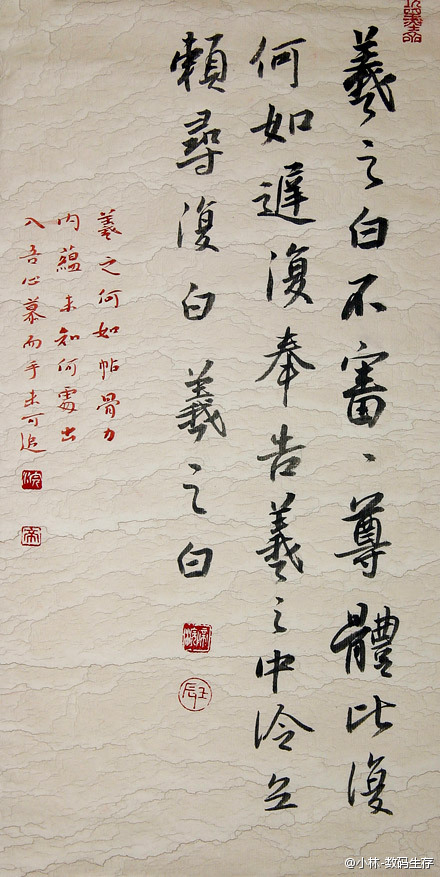 羲之白不審、尊體比復
何如遲復奉告羲之中冷無
賴尋復白 羲之白
羲之何如帖骨力
内蘊未知何處出
入吾心慕而手未可追
壬辰
@小林-教码生存